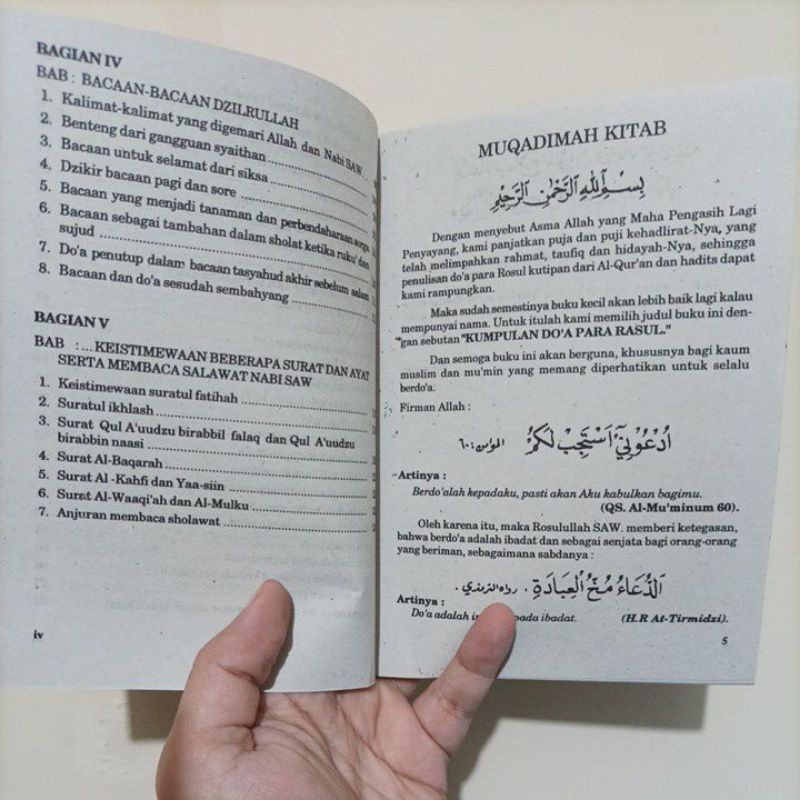 BAGIAN IV
BAB : BACAAN-BACAAN DZILRULLAH
1. Kalimat-kalimat yang digemari Allah dan Nabi SAW ..
2. Benteng dari gangguan syaithan ....................
3. Bacaan untuk selamat dari siksa ....................
4. Dzikir bacaan pagi dan sore ....................
5. Bacaan yang menjadi tanaman dan perbendaharaan sorga
6. Bacaan sebagai tambahan dalam sholat ketika ruku' dan
sujud ....................
7. Do'a penutup dalam bacaan tasyahud akhir sebelum salam
8. Bacaan dan do'a sesudah sembahyang ....................
BAGIAN V
BAB :...KEISTIMEWAAN BEBERAPA SURAT DAN AYAT
SERTA MEMBACA SALAWAT NABI SAW
1. Keistimewaan suratul fatihah ....................
2. Suratul ikhlash ....................
3. Surat Qul A'uudzu birabbil falaq dan Qul A'uudzu
birabbin naasi ....................
4. Surat Al-Baqarah ....................
5. Surat Al -Kahfi dan Yaa-siin ....................
6. Surat Al-Waaqi'ah dan Al-Mulku ....................
7. Anjuran membaca sholawat ....................
iv
MUQADIMAH KITAB
بِسْمِ اللهِ الرَّحْمٰنِ الرَّحِيْمِ
Dengan menyebut Asma Allah yang Maha Pengasih Lagi
Penyayang, kami panjatkan puja dan puji kehadlirat-Nya, yang
telah melimpahkan rahmat, taufiq dan hidayah-Nya, sehingga
penulisan do'a para Rosul kutipan dari Al-Qur'an dan hadits dapat
kami rampungkan.
Maka sudah semestinya buku kecil akan lebih baik lagi kalau
mempunyai nama. Untuk itulah kami memilih judul buku ini den-
gan sebutan "KUMPULAN DO'A PARA RASUL."
Dan semoga buku ini akan berguna, khususnya bagi kaum
muslim dan mu'min yang memang diperhatikan untuk selalu
berdo'a:
Firman Allah :
اُدْعُوْنِيْٓ اَسْتَجِبْ لَكُمْ المؤمن: ٦٠
Artinya :
Berdo'alah kepadaku, pasti akan Aku kabulkan bagimu.
(QS. Al-Mu'minum 60).
Oleh karena itu, maka Rosulullah SAW. memberi ketegasan,
bahwa berdo'a adalah ibadat dan sebagai senjata bagi orang-orang
yang beriman, sebagaimana sabdanya :
اَلدُّعَاءُ مُخُّ الْعِبَادَةِ . رواه الترمذي .
Artinya :
Do'a adalah ibadat. (H.R At-Tirmidzi).
5